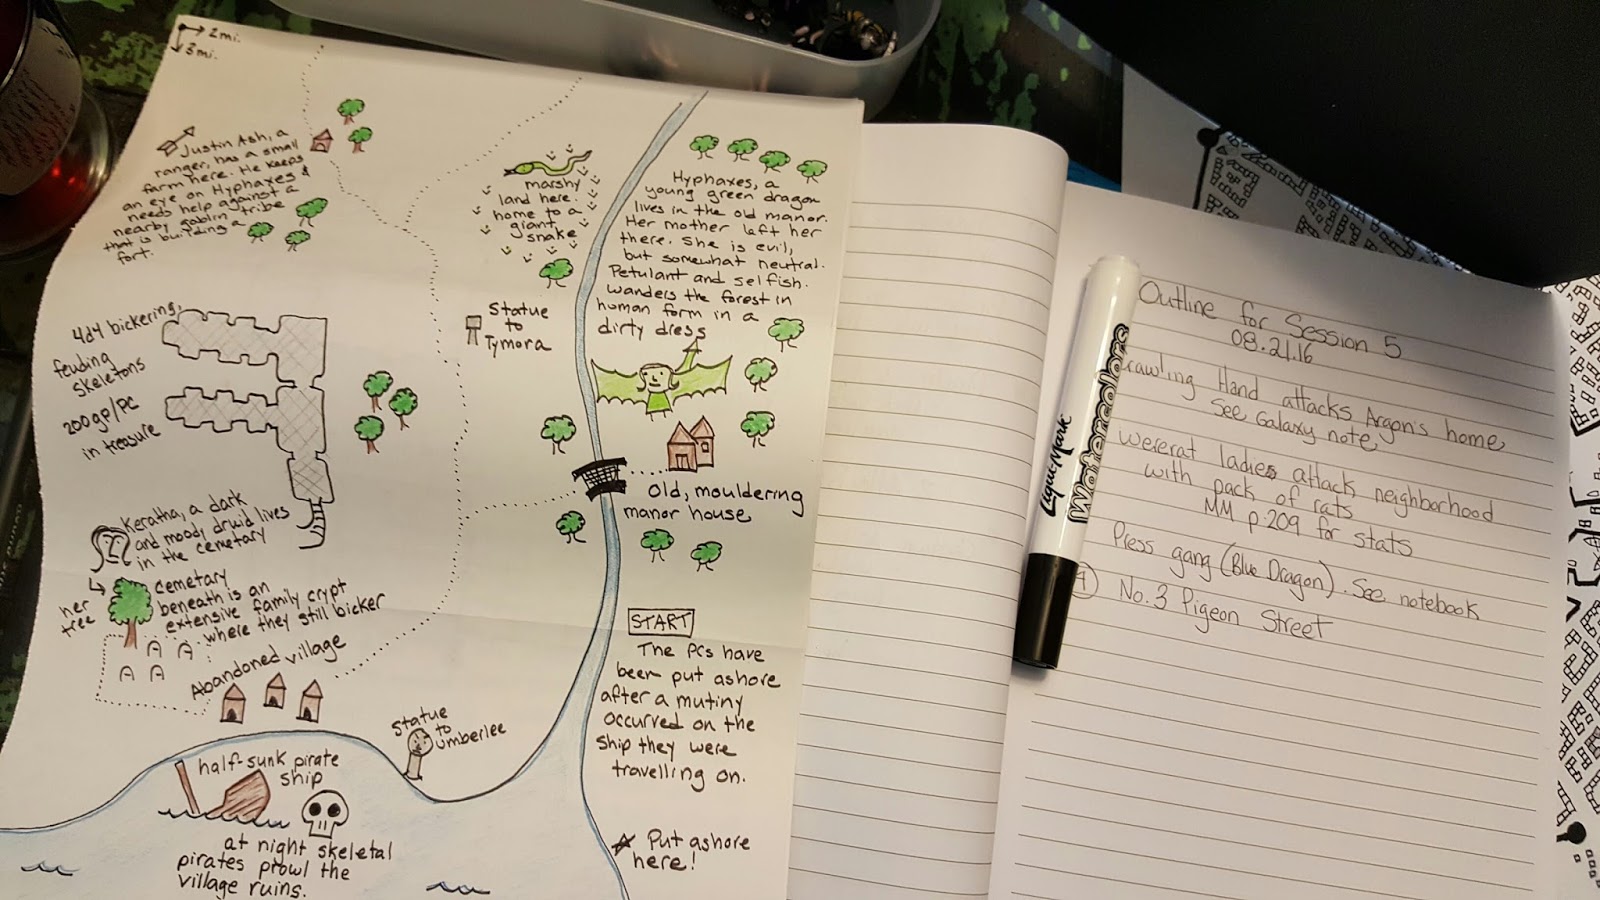 2mi.
3mi.
Justin Ash, a
ranger, has a small
farm here. He keeps
an eye on Hyphaxes &
needs help against a
nearby goblin tribe
that is building a
fort.
marshy
land here.
home to a
giant
snake
Hyphaxes, a
young green dragon
lives in the old manor.
Her mother left her
there. She is evil,
but somewhat neutral.
Petulant and selfish.
wanders the forest in
human form in a
dirty dress
Statue
to
Tymora
4d4 bickering,
feuding
skeletons
200gp/PC
in treasure
old, mouldering
manor house
Keratha, a dark
and moody druid lives
in the cemetary
her
tree
cemetary
beneath is an
extensive family crypt
where they still bicker
Abandoned village
START
The PCs have
been put ashore
after a mutiny
occurred on the
ship they were
travelling on.
Put ashore
here!
Statue
to
Umberlee
half-sunk pirate
ship
at night skeletal
pirates prowl the
village ruins.
Liqui-Mark
Watercolors
Outline for Session 5
08.21.16
Crawling Hand attacks Argon's home
See Galaxy note
Wererat ladies attack neighborhood
with pack of rats
MM p.209 for stats
Press gang (Blue Dragon). See notebook
4 No. 3 Pigeon Street